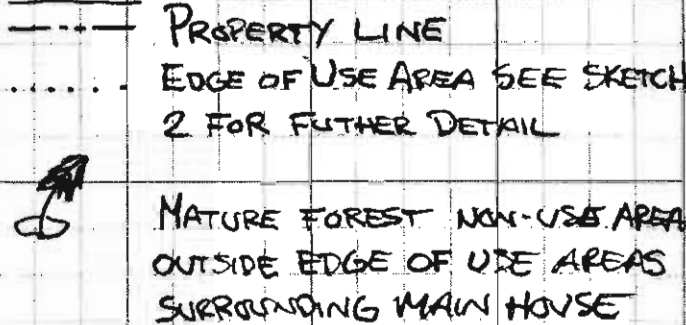 PROPERTY LINE
EDGE OF USE AREA SEE SKETCH
2 FOR FUTHER DETAIL
MATURE FOREST NON-USE AREA
OUTSIDE EDGE OF USE AREAS
SURROUNDING MAIN HOUSE